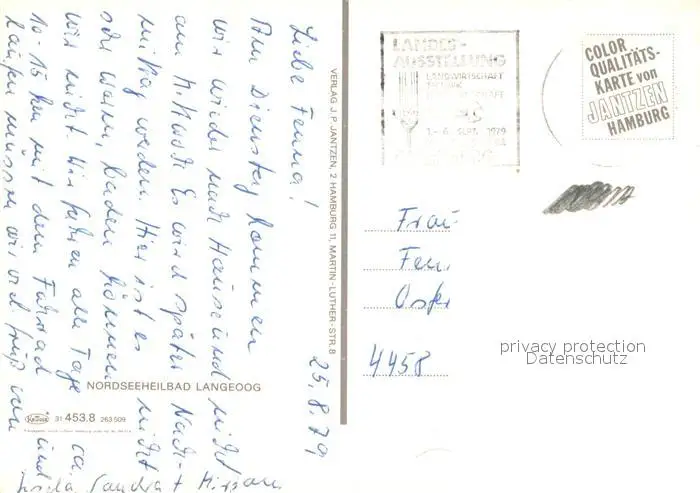 25.8.79
Liebe Fenna!
Am Dienstag kommen
wir wieder nach Hause und nicht
am . Es wird später Nach-
mittag werden. Hier ist es nicht
sehr warm, baden können
wir nicht. Wir fahren alle Tage ca.
10-15 km mit dem Fahrrad und
laufen müssen wir viel
Sandra + Mirjam
NORDSEEHEILBAD LANGEOOG
Krüger 31 453.8 263 509
VERLAG J. P. JANTZEN, 2 HAMBURG 11, MARTIN-LUTHER-STR. 8
LANDES-
AUSSTELLUNG
LANDWIRTSCHAFT
1.-6. SEPT. 1979
COLOR
QUALITÄTS-
KARTE von
JANTZEN
HAMBURG
Frau
Fen
4458
privacy protection
Datenschutz